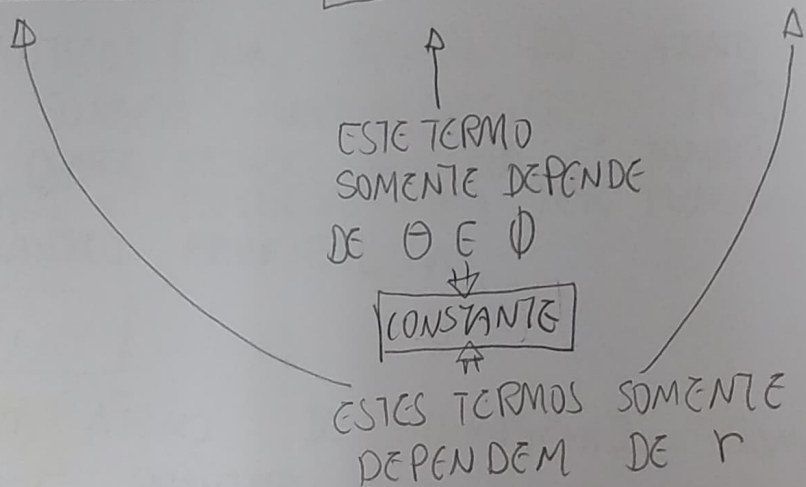 ESTE TERMO
SOMENTE DEPENDE
DE θ E ϕ
CONSTANTE
ESTES TERMOS SOMENTE
DEPENDEM DE r